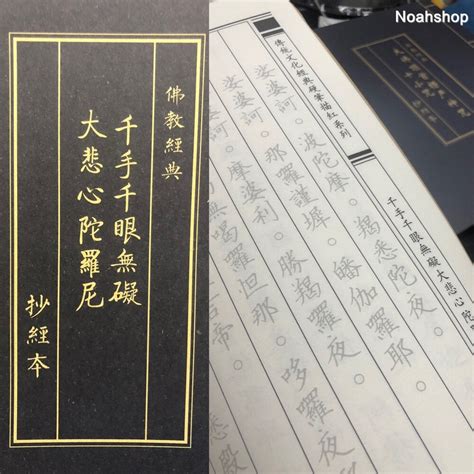 Noahshop
佛教經典
千手千眼無礙
大悲心陀羅尼
抄經本
傳統文化經典硬筆描紅系列
千手千眼無礙大悲心陀
娑婆訶。波陀摩。羯悉陀夜。
娑婆訶。那囉謹墀。皤伽囉耶。
。摩婆利。勝羯囉夜。
無喝囉怛那。哆囉夜
帝。